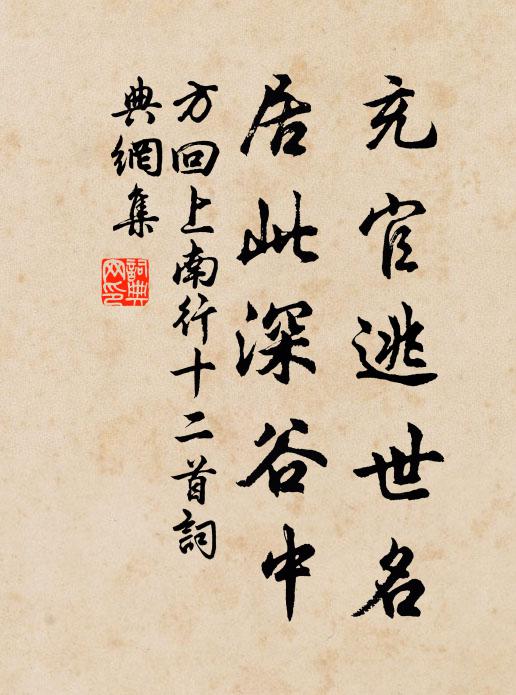 充官逃世名
居此深谷中
方回上南行十二首詞
典網集
詞典
网印